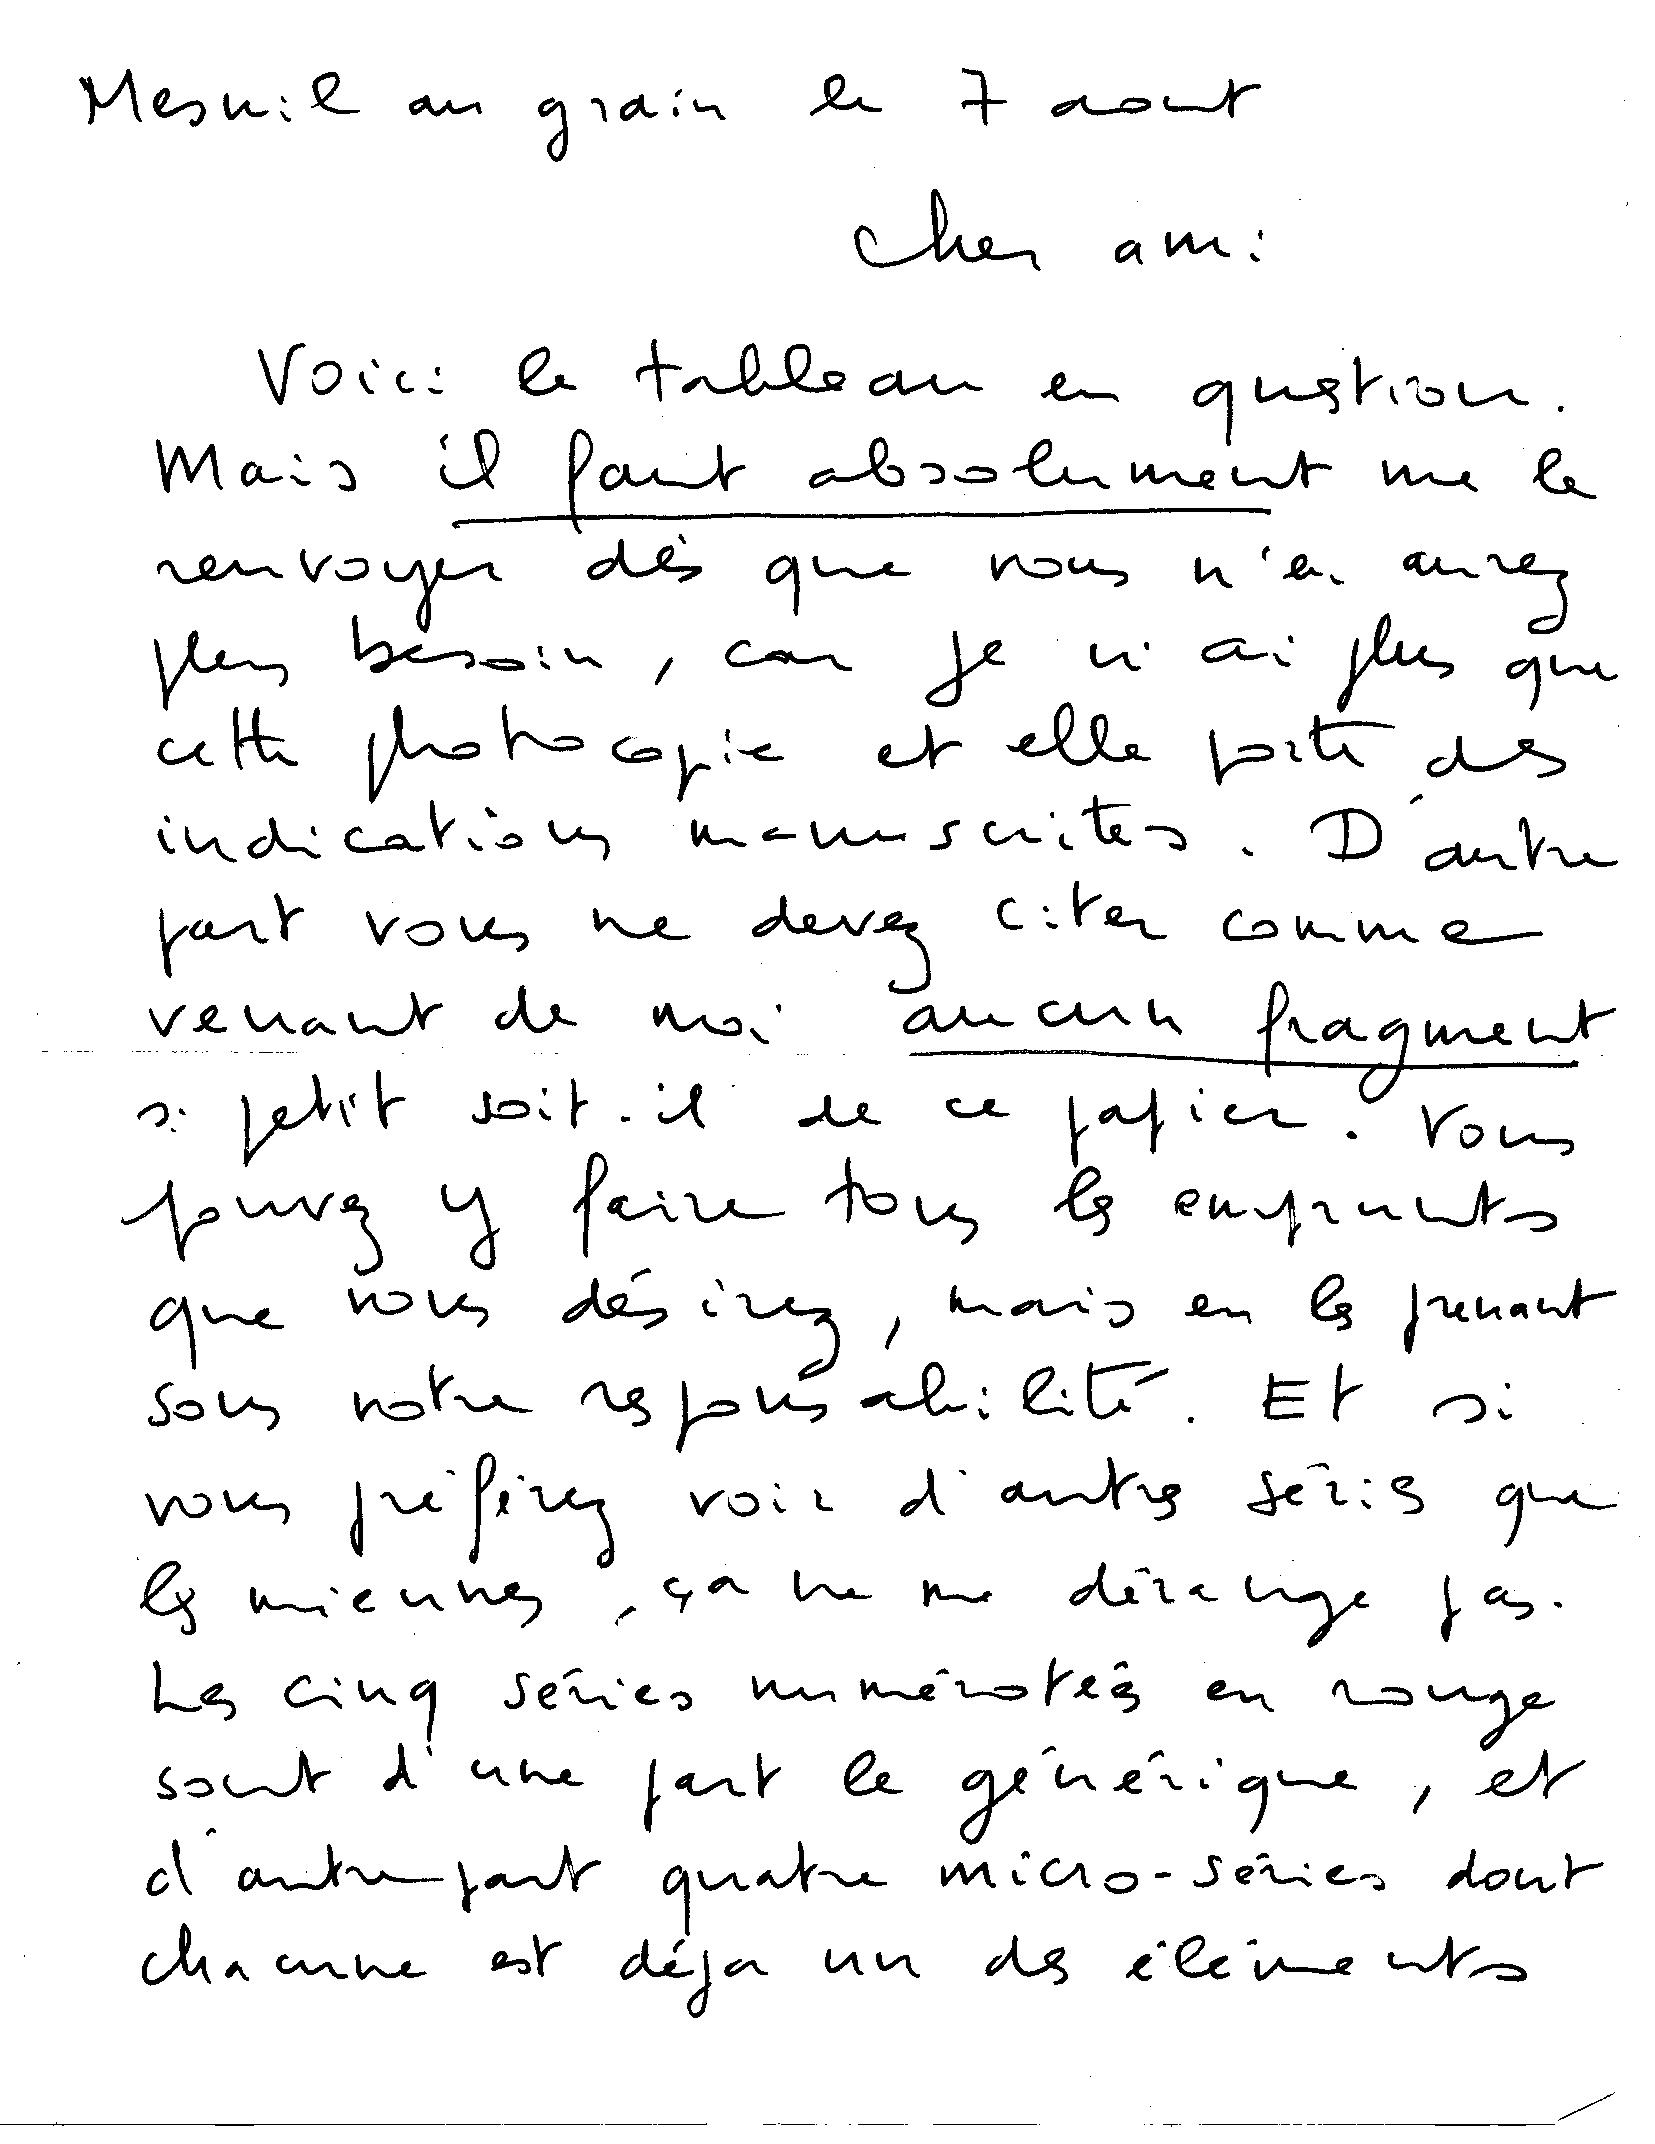 Mesnil au grain le 7 aout
Cher ami
Voici le tableau en question.
Mais il faut absolument me le
renvoyer dès que vous n'en aurez
plus besoin, car je n'ai plus que
cette photocopie et elle porte des
indications manuscrites. D'autre
part vous ne devez citer comme
venant de moi aucun fragment
si petit soit-il de ce papier. Vous
pouvez y faire tous les emprunts
que vous désirez, mais en les prenant
sous votre responsabilité. Et si
vous préférez voir d'autres séries que
les miennes, ça ne me dérange pas.
Les cinq séries numérotées en rouge
sont d'une part le générique, et
d'autre part quatre micro-séries dont
chacune est déja un des éléments